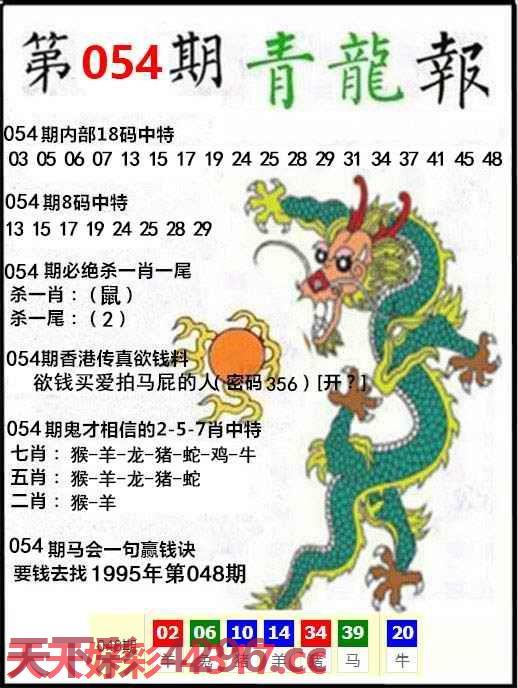 第054期青龍報
054期内部18码中特
03 05 06 07 13 15 17 19 24 25 28 29 31 34 37 41 45 48
054期8码中特
13 15 17 19 24 25 28 29
054 期必绝杀一肖一尾
杀一肖：（鼠）
杀一尾：（2）
054期香港传真欲钱料
欲钱买爱拍马屁的人（密码356）[开？]
054期鬼才相信的2-5-7肖中特
七肖：猴-羊-龙-猪-蛇-鸡-牛
五肖：猴-羊-龙-猪-蛇
二肖：猴-羊
054期马会一句赢钱诀
要钱去找1995年第048期
02 06 10 14 34 39 20
048期 羊 兔 猪 羊 猪 马 牛
天下好彩4296.cc